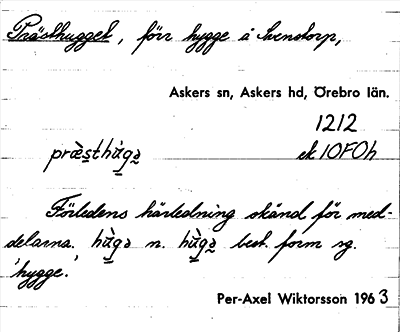 Prästhugget, förr hygge å Svenstorp,
Askers sn, Askers hd, Örebro län.
1212
præ̀sthụ̀gə ek 10F0h
Förledens härledning okänd för med-
delarna. hụ̀gə n. hụ̀gə best. form sg.
'hygge.'
Per-Axel Wiktorsson 1963